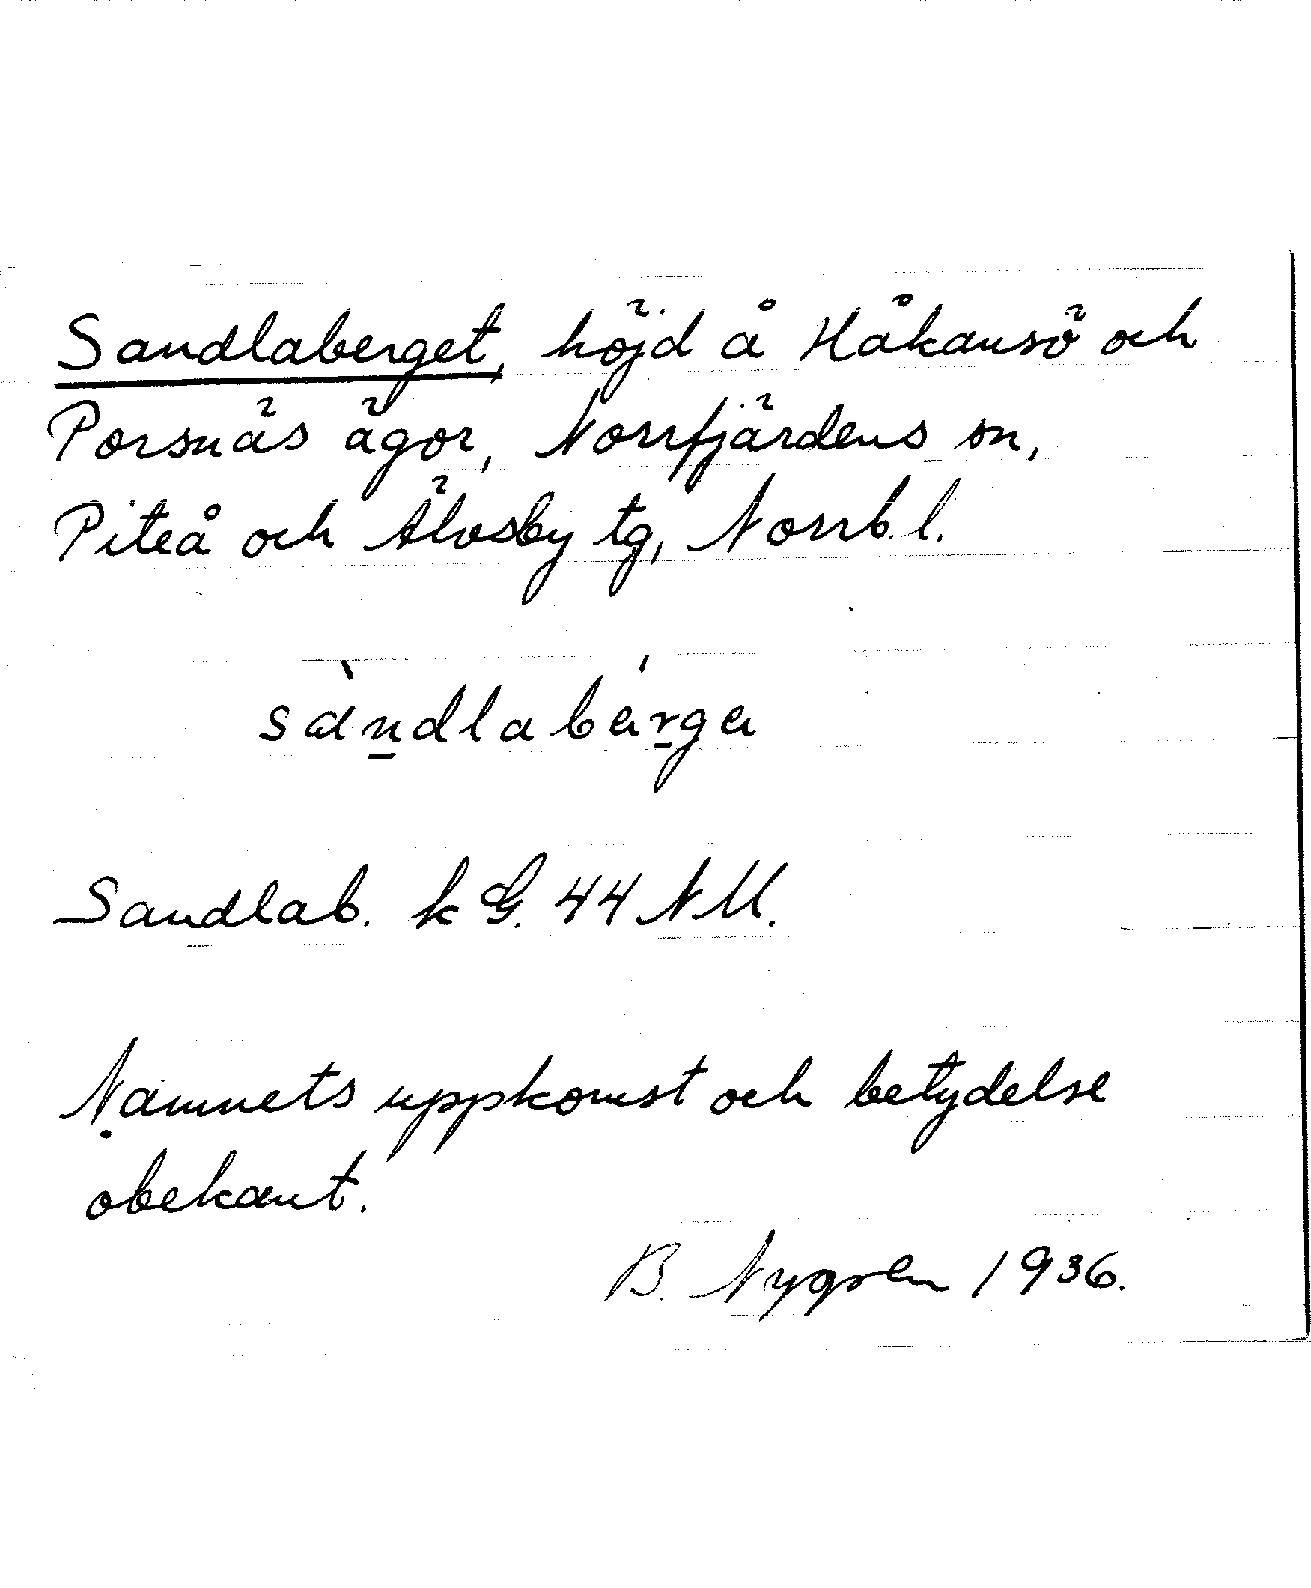 Sandlaberget, höjd å Håkansö och
Porsnäs ägor, Norrfjärdens sn,
Piteå och Älvsby tg, Norrb. l.
sàndlabárga
Sandlab. k G. 44 NU.
Namnets uppkomst och betydelse
obekant.
B. Nygren 1936.